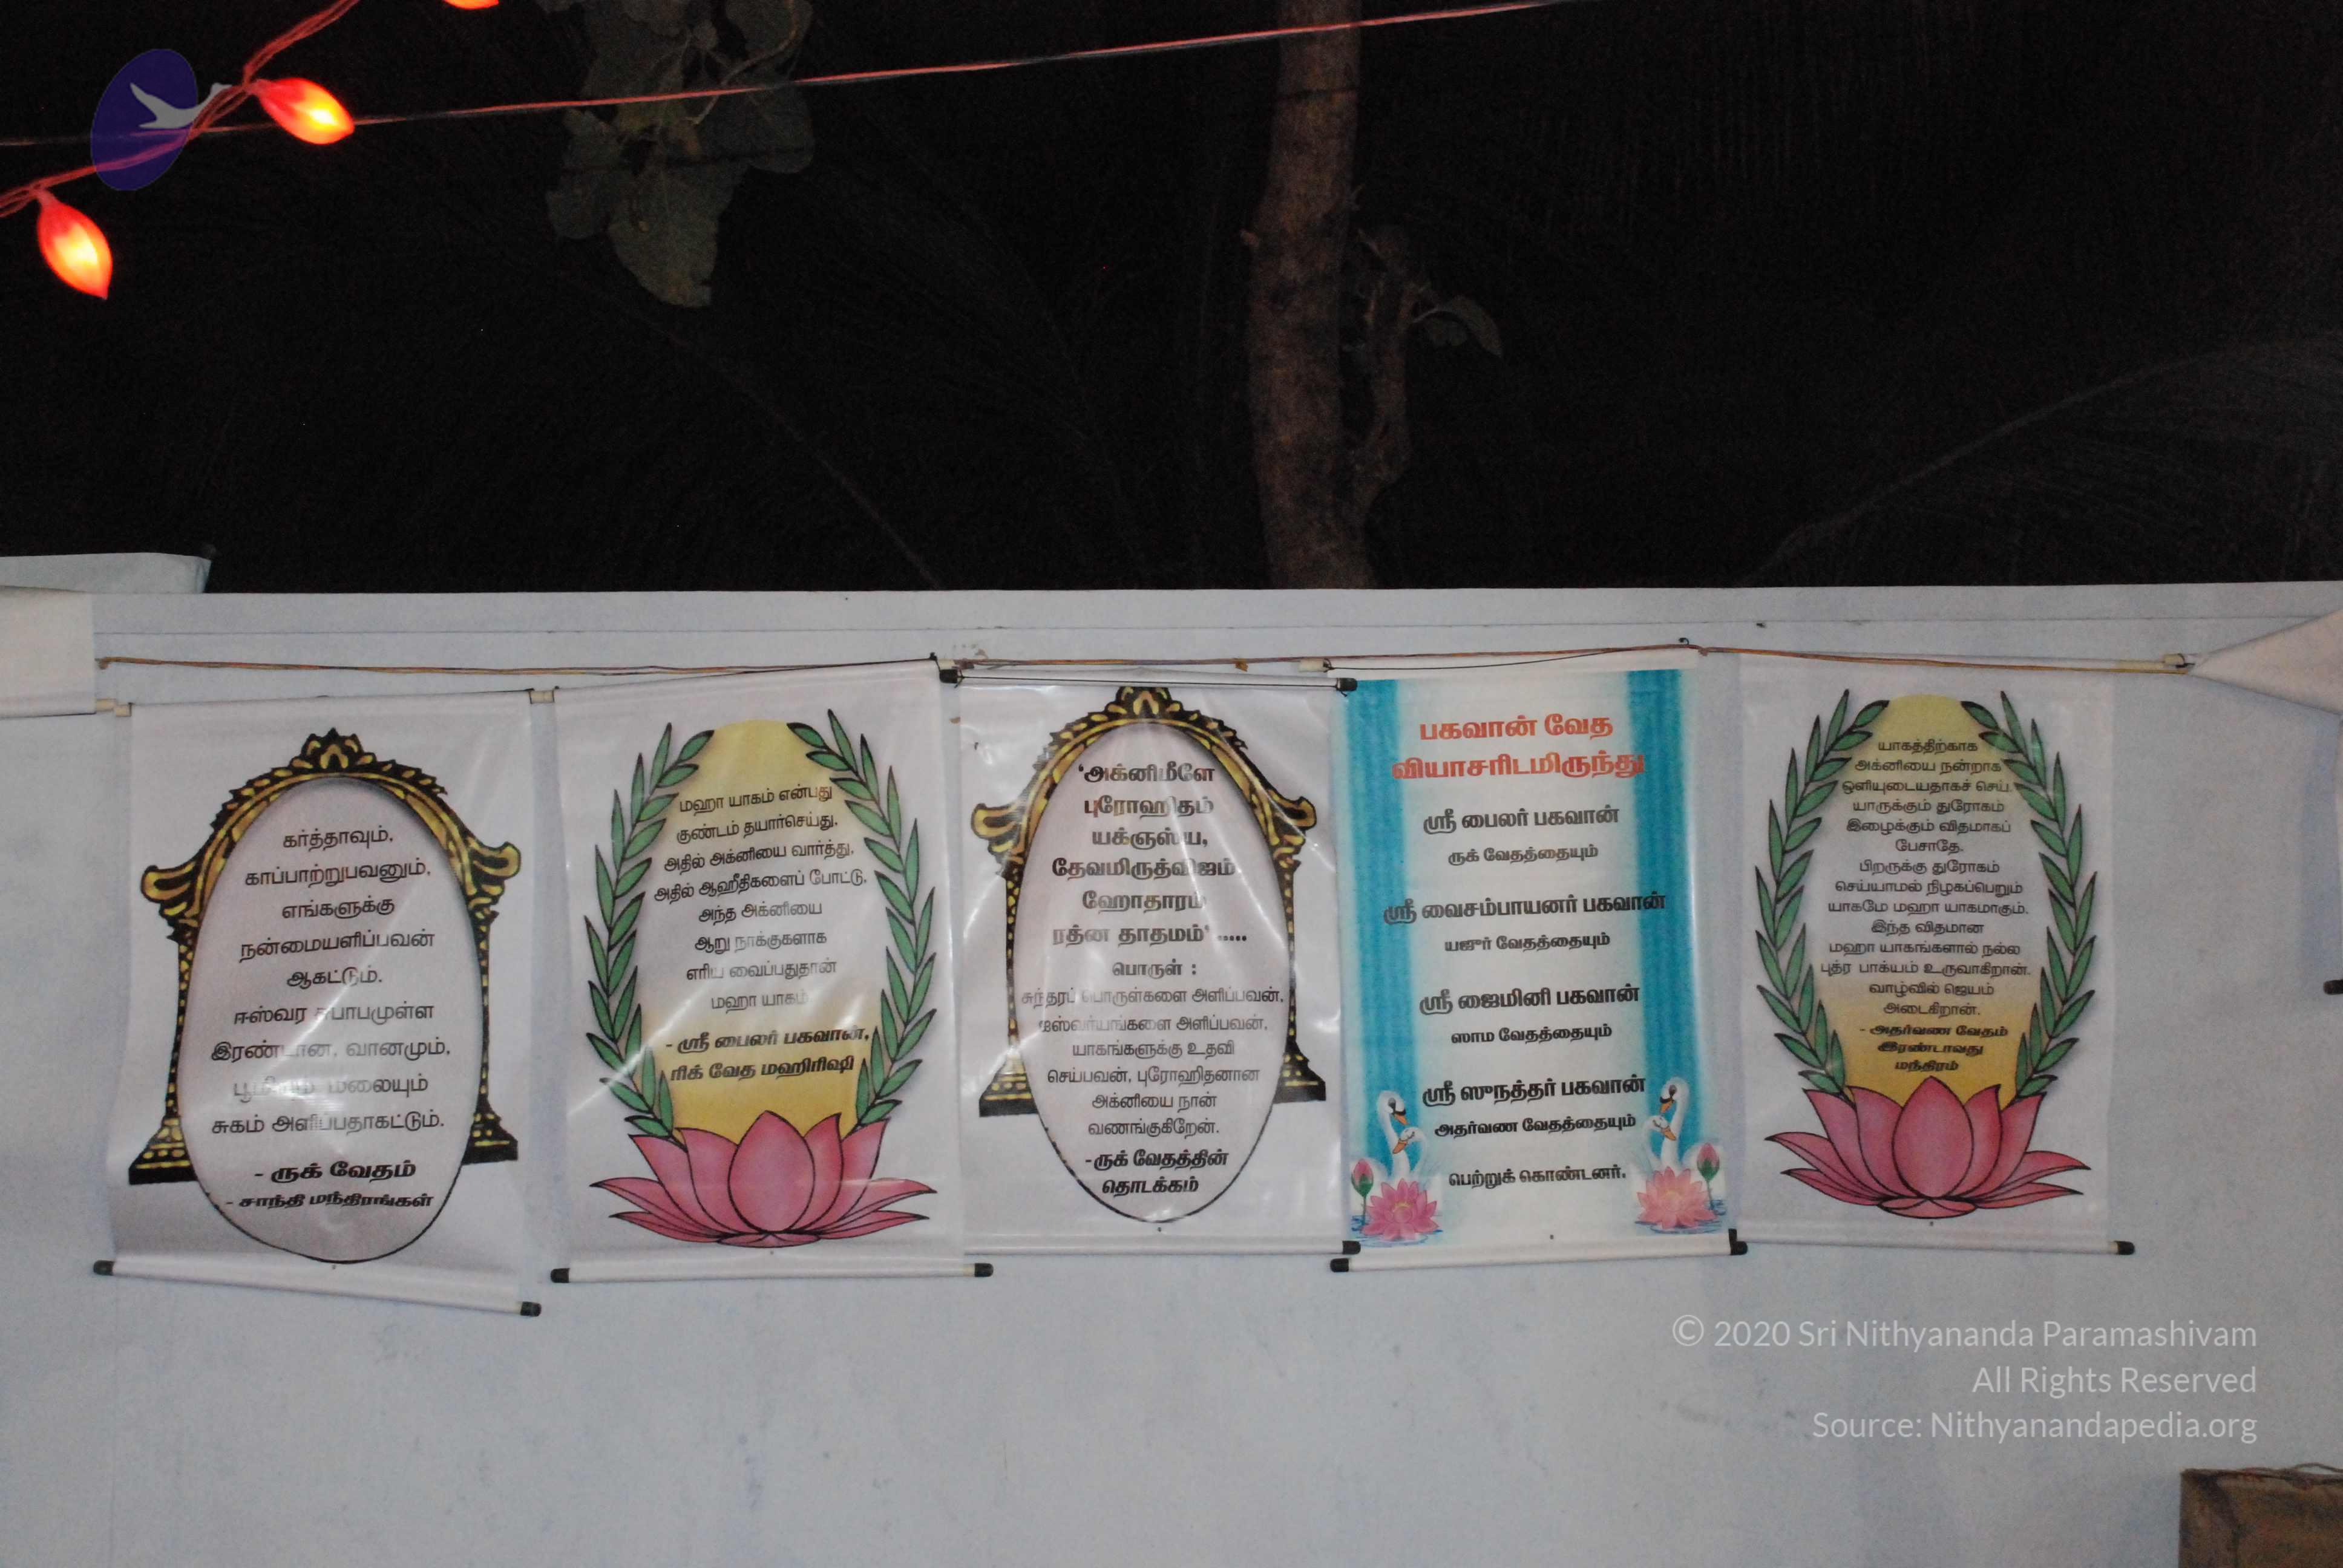 கர்த்தாவும்,
காப்பாற்றுபவனும்,
எங்களுக்கு
நன்மையளிப்பவன்
ஆகட்டும்.
ஈஸ்வர சுபாபமுள்ள
இரண்டான, வானமும்,
பூமியும் மலையும்
சுகம் அளிப்பதாகட்டும்.
- ருக் வேதம்
- சாந்தி மந்திரங்கள்
மஹா யாகம் என்பது
குண்டம் தயார்செய்து,
அதில் அக்னியை வார்த்து,
அதில் ஆஹீதிகளைப் போட்டு,
அந்த அக்னியை
ஆறு நாக்குகளாக
எரிய வைப்பதுதான்
மஹா யாகம்
- ஸ்ரீ பைலர் பகவான்,
ரிக் வேத மஹிரிஷி
'அக்னிமீளே
புரோஹிதம்
யக்ஞஸ்ய,
தேவமிருத்விஜம்
ஹோதாரம்
ரத்ன தாதமம்' .....
பொருள் :
சுந்தரப் பொருள்களை அளிப்பவன்,
ஐஸ்வர்யங்களை அளிப்பவன்,
யாகங்களுக்கு உதவி
செய்பவன், புரோஹிதனான
அக்னியை நான்
வணங்குகிறேன்.
-ருக் வேதத்தின்
தொடக்கம்
பகவான் வேத
வியாசரிடமிருந்து
ஸ்ரீ பைலர் பகவான்
ருக் வேதத்தையும்
ஸ்ரீ வைசம்பாயனர் பகவான்
யஜுர் வேதத்தையும்
ஸ்ரீ ஜைமினி பகவான்
ஸாம வேதத்தையும்
ஸ்ரீ ஸுநத்தர் பகவான்
அதர்வண வேதத்தையும்
பெற்றுக் கொண்டனர்.
யாகத்திற்காக
அக்னியை நன்றாக
ஒளியுடையதாகச் செய்.
யாருக்கும் துரோகம்
இழைக்கும் விதமாகப்
பேசாதே.
பிறருக்கு துரோகம்
செய்யாமல் நிழகப்பெறும்
யாகமே மஹா யாகமாகும்.
இந்த விதமான
மஹா யாகங்களால் நல்ல
புத்ர பாக்யம் உருவாகிறான்.
வாழ்வில் ஜெயம்
அடைகிறான்.
- அதர்வண வேதம்
இரண்டாவது
மந்திரம்
© 2020 Sri Nithyananda Paramashivam
All Rights Reserved
Source: Nithyanandapedia.org